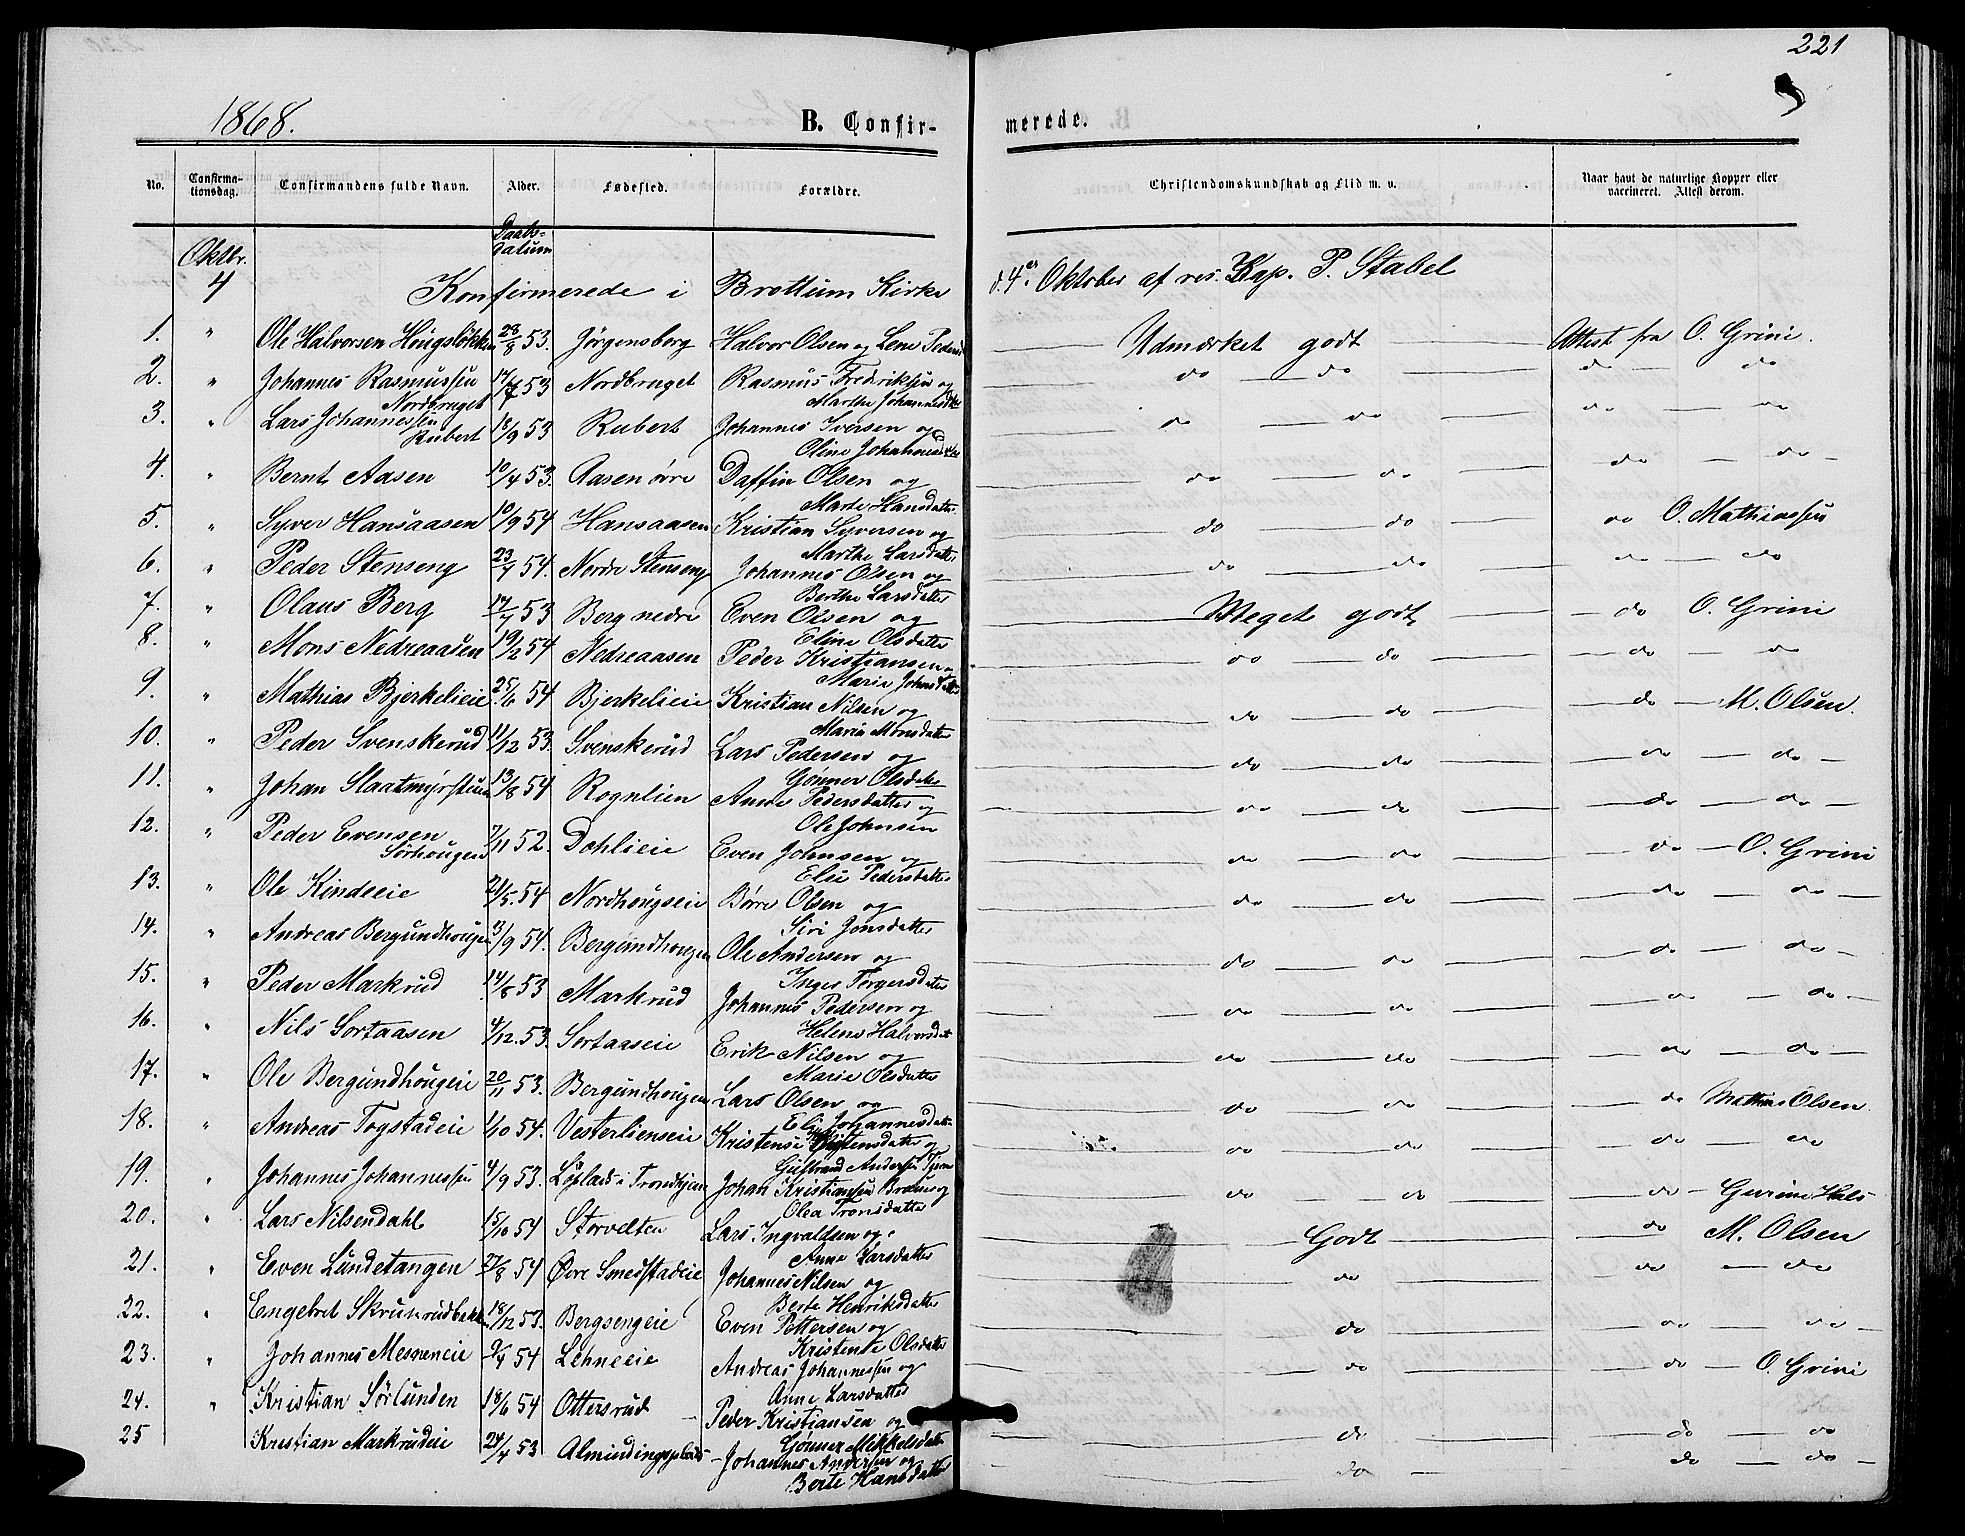 221
1868.
B. Confir-
merede.
No.
Confirma-
tionsdag.
Confirmandens fulde Navn.
Alder.
Fødested.
Forældre.
Christendomskundskab og Flid m. v.
Naar havt de naturlige Kopper eller
vaccineret. Attest derom.
Daabs-
datum
Oktbr.
4 Konfirmerede i Brøttum Kirke d. 4 Oktober af res. Kap. P. Stabel
1. " Ole Halvorsen Hougsløkken 28/8 53. Jørgensborg Halvor Olsen og Lene Pedersd Udmærket godt Attest fra O. Grini.
2. " Johannes Rasmussen Nordbruget 17/7 53 Nordbruget Rasmus Fredriksen og Marthe Johannesd do do do do
3. " Lars Johannessen Rubert 18/9 53 Rubert Johannes Iversen og Oline Johannesd do do do do
4. " Bernt Aasen 10/4 53. Aasen øvre Daffin Olsen og Marte Hansdatter do do do do
5. " Syver Hansaasen 10/9 54 Hansaasen Kristian Syversen og Marthe Larsdatter do do do O. Mathiassen
6. " Peder Stenseng 23/7 54. Nordre Stenseng Johannes Olsen og Berthe Larsdatter do do do do
7. " Olaus Berg 17/7 53 Berg nedre Even Olsen og Eline Olsdatter Meget godt do O. Grini
8. " Mons Nedreaasen 19/2 54 Nedreaasen Peder Kristiansen Marie Johnsd do do do do
9. " Mathias Bjerkelieie 25/6 54 Bjerkelieie Kristian Nilsen og Maria Monsdatter do do do M. Olsen.
10. " Peder Svenskerud 11/12 53. Svenskerud Lars Pedersen og Gønner Olsdatter do do do do
11. " Johan Slaatmyrstuen 13/8 54 Rognlien Anne Pedersdatter og Ole Johnsen do do do do
12. " Peder Evensen Sørhougen 7/11 52. Dahlieie Even Johnsen og Elie Pedersdatter do do do O. Grini
13. " Ole Kindseie 21/5. 54 Nordhougseie Børre Olsen og Siri Jonsdatter do do do do
14. " Andreas Bergundhougen 3/9 54. Bergundhougen Ole Andersen og Inger Torgersdatter do do do do
15. " Peder Markrud 14/8 53 Markrud Johannes Pedersen og Helene Halvorsdat do do do do
16. " Nils Sortaasen 4/12. 53. Sortaaseie Erik Nilsen og Marie Olsdatter do do do do
17. " Ole Bergundhougeie 20/11 53. Bergundhougen Lars Olsen og Eli Johannesdatter do do do Mathias Olsen
18. " Andreas Fogstadeie 1/10 54. Vesterlienseie Kristense datter og Gulbrand Andersen do do do do
19. " Johannes Johannessen 4/9 53. Trondhjem Johan Kristiansen og Olea Tronsdatter do do do Gurine Hals
20. " Lars Nilsendahl 15/10 54 Storvelten Lars Ingvaldsen og Anne Larsdatter Godt do M. Olsen
21. " Even Lundetangen 27/8 54 Øvre Smedstadeie Johannes Nilsen og Berte Henriksdatter do do do
22. " Engebret Skrukrudbakken 18/12 53. Bergsengeie Even Pettersen og Kristense Olsdatter do do do
23. " Johannes Mesneneie 9/4 54 Lehneeie Andreas Johannessen og Anne Larsdatter do do O. Grini
24. " Kristian Sørlunden 18/6 54 Ottersrud Peder Kristiansen og Gønner Mikkelsdatter do do do
25 Kristian Markrudeie 24/4 53 Almindingsplads Johannes Andersen og Berte Hansdatter do do do